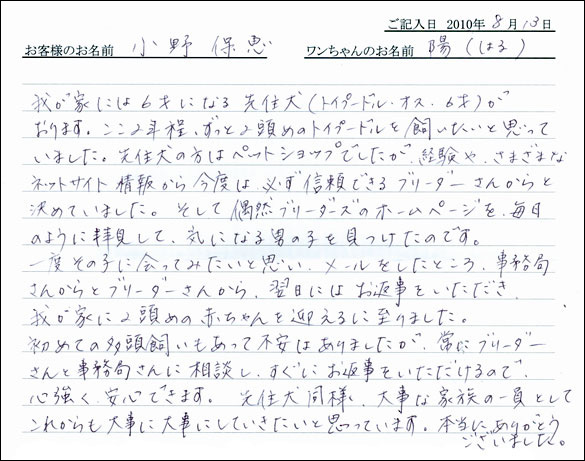 ご記入日 2010年 8月 13日
お客様のお名前 小野 保恵 ワンちゃんのお名前 陽(はる)
我が家には6才になる先住犬(トイプードル・オス・6才)が
おります。ここ2年程、ずっと2頭めのトイプードルを飼いたいと思って
いました。先住犬の方はペットショップでしたが、経験や、さまざまな
ネットサイト情報から今度は必ず信頼できるブリーダーさんからと
決めていました。そして偶然ブリーダーズのホームページを、毎日
のように拝見して、気になる男の子を見つけたのです。
一度その子に会ってみたいと思い、メールをしたところ、事務局
さんからとブリーダーさんから、翌日にはお返事をいただき、
我が家に2頭めの赤ちゃんを迎えるに至りました。
初めての多頭飼いもあって不安はありましたが、常にブリーダー
さんと事務局さんに相談し、すぐにお返事をいただけるので、
心強く、安心できます。先住犬同様、大事な家族の一員として
これからも大事に大事にしていきたいと思っています。本当にありがとう
ございました。